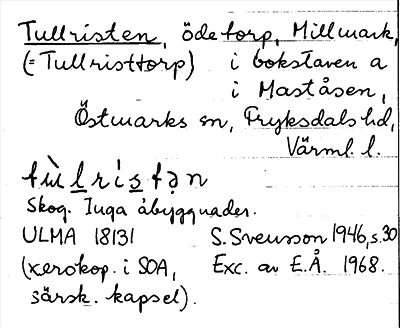 Tullristen, ödetorp, Millmark,
(= Tullristtorp) i bokstaven a
i Maståsen,
Östmarks sn, Fryksdals hd,
Värml. l.
tùl̲ri`s̲tən
Skog. Inga åbyggnader.
ULMA 18131 S. Svensson 1946, s. 30
(xerokop. i SOA, Exc. av E.Å. 1968.
särsk. kapsel).